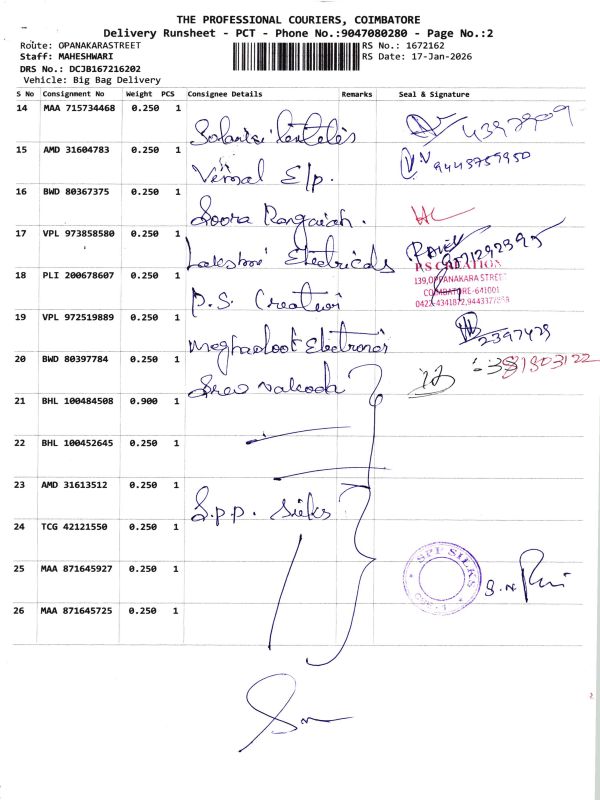 THE PROFESSIONAL COURIERS, COIMBATORE
Delivery Runsheet - PCT - Phone No.:9047080280 - Page No.:2
Route: OPANAKARASTREET
RS No.: 1672162
Staff: MAHESHWARI
RS Date: 17-Jan-2026
DRS No.: DCJB167216202
Vehicle: Big Bag Delivery
S No Consignment No Weight PCS Consignee Details Remarks Seal & Signature
14 MAA 715734468 0.250 1
15 AMD 31604783 0.250 1 9443759950
16 BWD 80367375 0.250 1 Soora Rangaiah.
17 VPL 973858580 0.250 1 Lakshmi Electricals
P.S CREATION
139,OPPANAKARA STREET
COIMBATORE-641001
18 PLI 200678607 0.250 1 P.S. Creation
19 VPL 972519889 0.250 1 Meghadoot Electronics 2397429
20 BWD 80397784 0.250 1 Sree
21 BHL 100484508 0.900 1
22 BHL 100452645 0.250 1
23 AMD 31613512 0.250 1 S.p.p. Silks
24 TCG 42121550 0.250 1
25 MAA 871645927 0.250 1 SPP SILKS
26 MAA 871645725 0.250 1